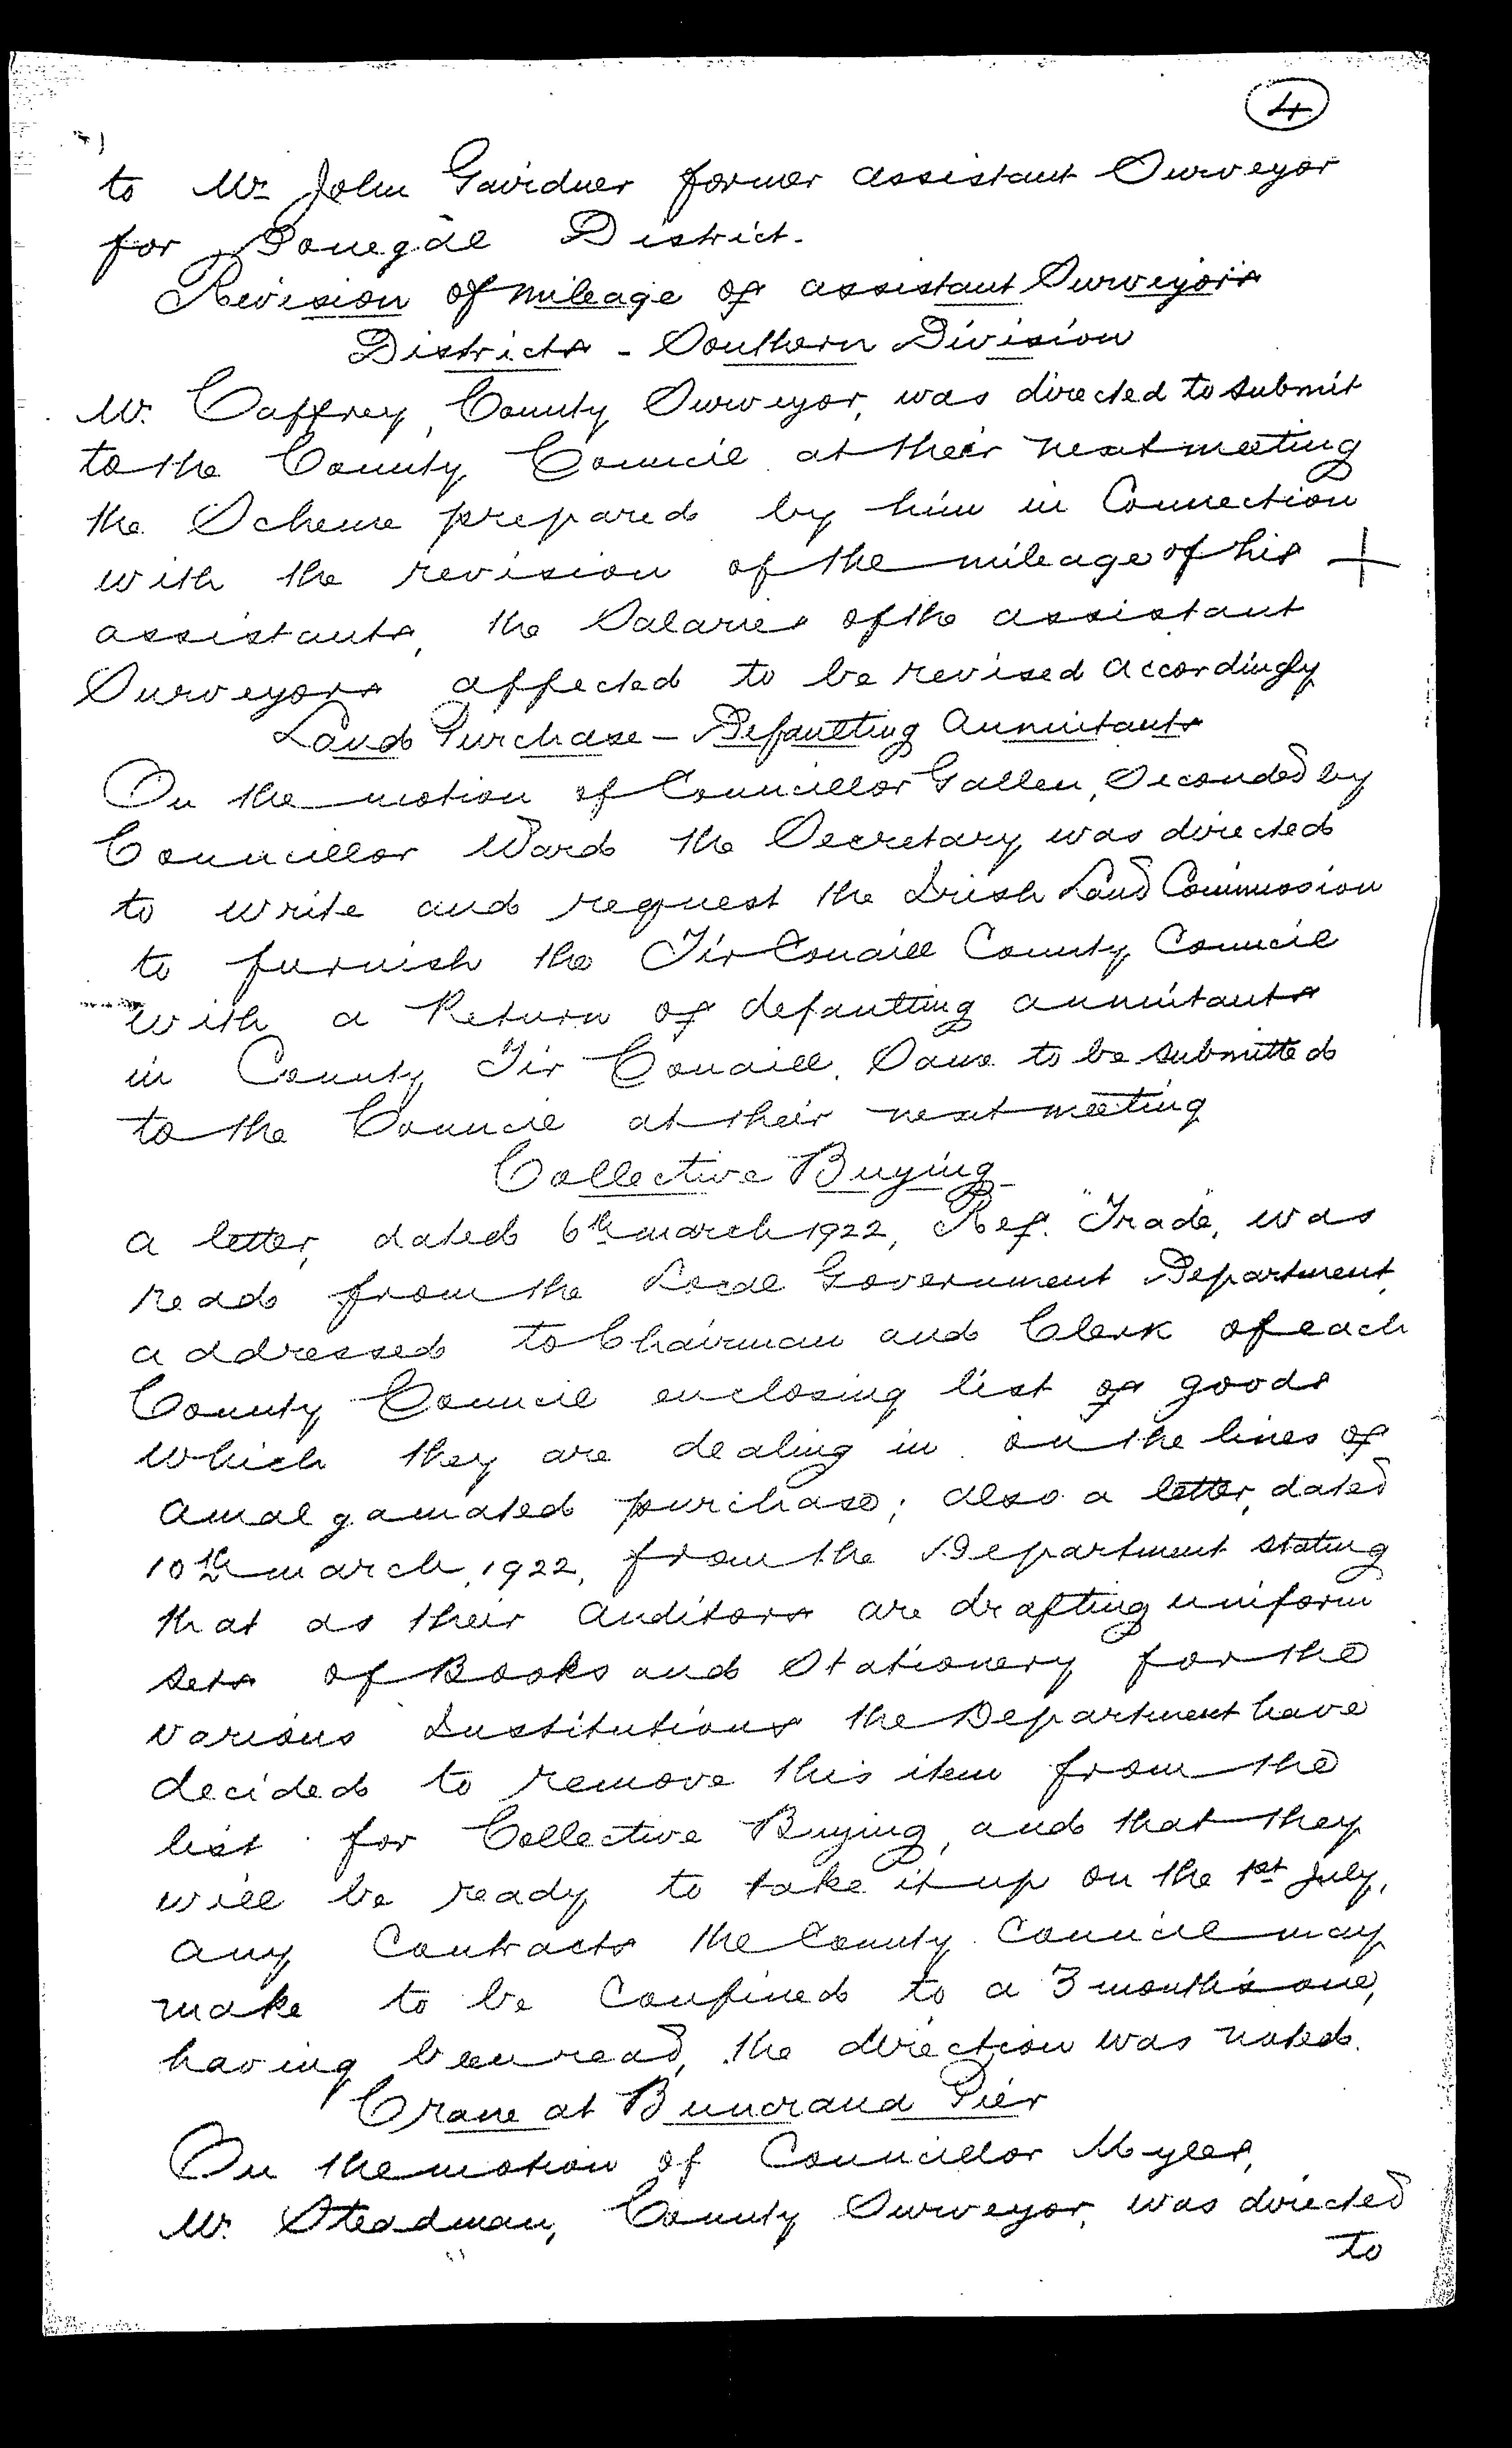 4
to Mr John Gavidner former assistant Surveyor
for Donegal District.
Revision of mileage of assistant Surveyors
Districts - Southern Division
Mr. Caffrey, County Surveyor, was directed to submit
to the County Council at their next meeting
the Scheme prepared by him in Connection
with the revision of the mileage of his +
assistants, the Salaries of the assistant
Surveyors affected to be revised accordingly
Land Purchase - Defaulting Annuitants
On the motion of Councillor Gallen, Seconded by
Councillor Ward the Secretary was directed
to write and request the Irish Land Commission
to furnish the Tir Conaill County Council
with a Return of defaulting annuitants
in County Tir Conaill. Same to be submitted
to the Council at their next meeting
Collective Buying
A letter, dated 6th March 1922, Ref. "Trade", was
read from the Local Government Department,
addressed to Chairman and Clerk of each
County Council enclosing list of goods
which they are dealing in on the lines of
amalgamated purchase; also a letter, dated
10th March, 1922, from the Department stating
that as their Auditors are drafting uniform
sets of Books and Stationery for the
various Institutions the Department have
decided to remove this item from the
list for Collective Buying, and that they
will be ready to take it up on the 1st July,
any Contracts the County Council may
make to be Confined to a 3 month's one,
having been read, the direction was noted.
Crane at Buncrana Pier
On the motion of Councillor Myles,
Mr. Steadman, County Surveyor, was directed
to